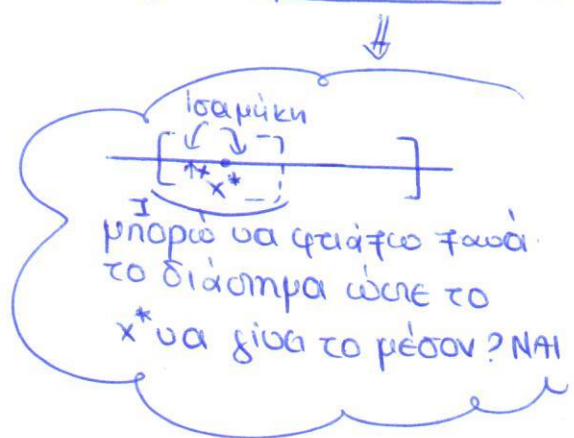 ⇓
Ισαμύκη
[ x x* ] ]
I
μπορώ να φτιάξω ξανά
το διάστημα ώστε το
x* να γίνει το μέσον? ΝΑΙ